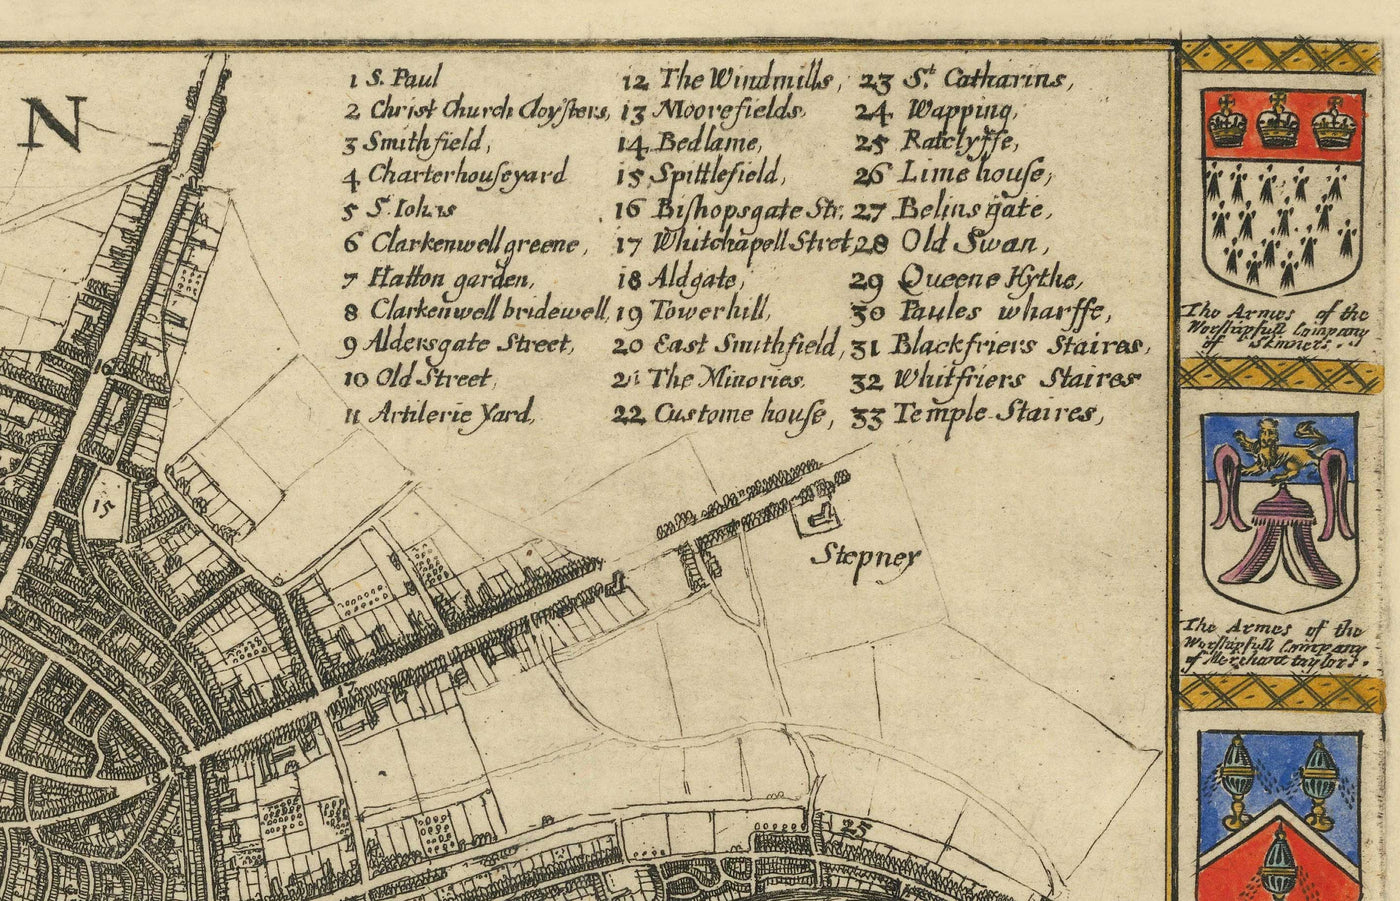 N
1 S. Paul
2 Christ Church Cloysters,
3 Smithfield,
4 Charterhouseyard
5 S. Iohns
6 Clarkenwell greene,
7 Hatton garden,
8 Clarkenwell bridewell,
9 Aldersgate Street,
10 Old Street,
11 Artilerie Yard,
12 The Windmills,
13 Moorefields,
14 Bedlame,
15 Spittlefield,
16 Bishopsgate Str.
17 Whitchapell Stret,
18 Aldgate,
19 Towerhill,
20 East Smithfield,
21 The Minories,
22 Custome house,
23 St. Catharins,
24 Wapping,
25 Ratclyffe,
26 Lime house,
27 Belinsgate,
28 Old Swan,
29 Queene Hythe,
30 Paules wharffe,
31 Blackfriers Staires,
32 Whitfriers Staires
33 Temple Staires,
16
15
16
17
18
25
Stepney
The Armes of the
Worshipfull Company
of Skinners.
The Armes of the
Worshipfull Company
of Merchant taylors.